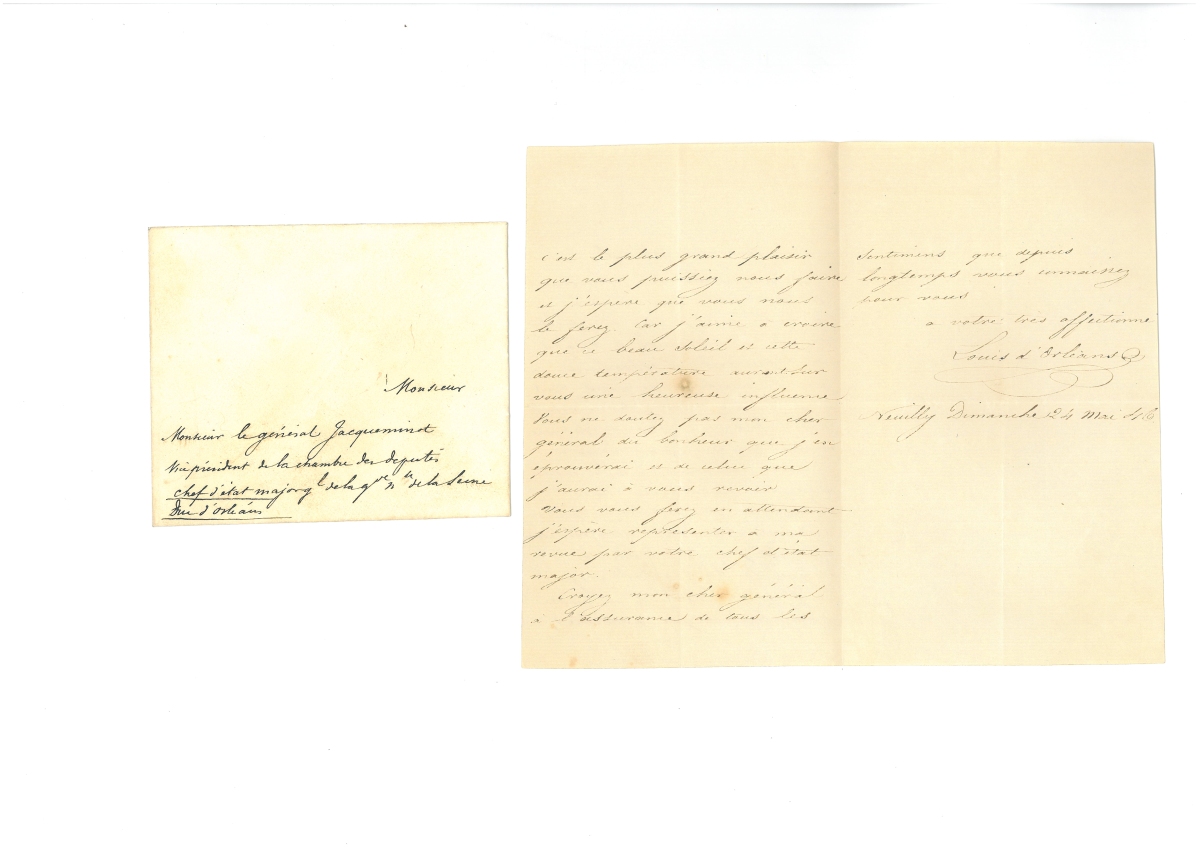 Monsieur
Monsieur le général Jacqueminot
Vice président de la chambre des deputés
chef d'état major gl de la gde nle de la Seine
Duc d'Orléans
c'est le plus grand plaisir
que vous puissiez nous faire
et j'espère que vous nous
le ferez. Car j'aime a croire
que ce beau soleil et cette
douce température auront sur
vous une heureuse influence
Vous ne doutez pas mon cher
général du bonheur que j'en
éprouverai et de celui que
j'aurai à vous revoir
Vous vous ferez en attendant
j'espère representer a ma
revue par votre chef d'état
major.
Croyez mon cher général
à l'assurance de tous les
sentimens que depuis
longtemps vous connaissez
pour vous
a votre très affectionné
Louis d'Orléans
Neuilly Dimanche 24 Mai 46